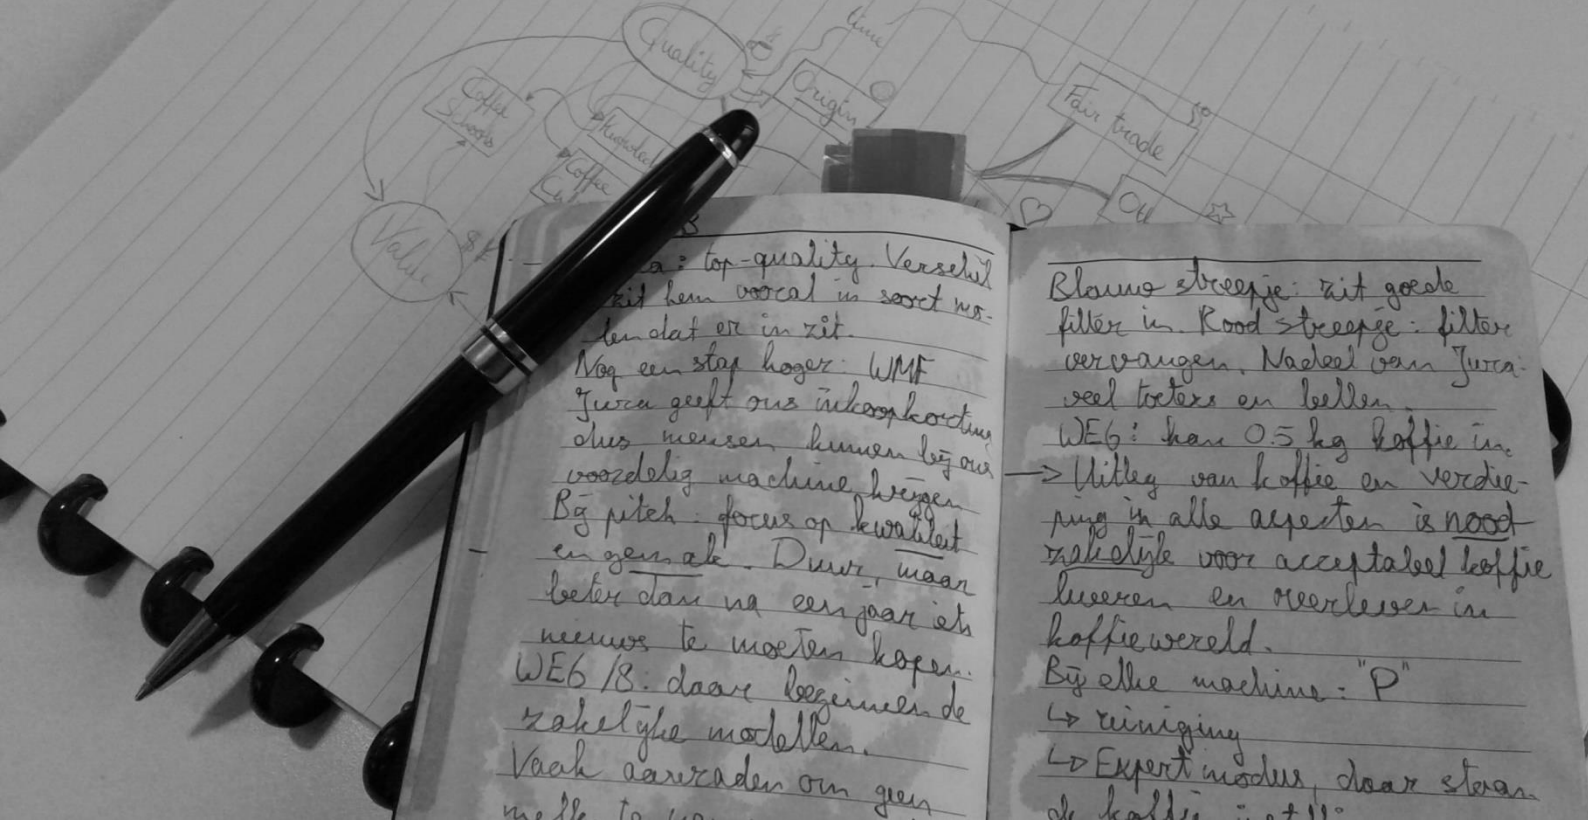 Quality
time
Origin
Fair trade
Coffee
Schools
Coffee
Value
top-quality. Verschil
zit hem vooral in soort mo-
len dat er in zit.
Nog een stap hoger: WMF
Jura geeft ons inkoopkorting
dus mensen kunnen bij ons
voordelig machine krijgen
Bij pitch: focus op kwaliteit
en gemak. Duur, maar
beter dan na een jaar iets
nieuws te moeten kopen.
WE6/8: daar beginnen de
zakelijke modellen.
Vaak aanraden om geen
Blauw streepje: zit goede
filter in. Rood streepje: filter
vervangen. Nadeel van Jura:
veel toeters en bellen.
WE6: kan 0.5 kg koffie in.
→ Uitleg van koffie en verdie-
ping in alle aspecten is nood-
zakelijk voor acceptabel koffie
leveren en overleven in
koffiewereld.
Bij elke machine: "P"
↳ reiniging
↳ Expert modus, daar staan
de koffie